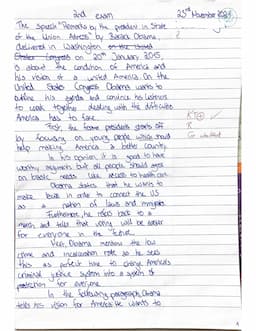 2nd exam 25th November 2021
The speech "Remarks by the president in State
of the Union Adress" by Barack Obama,
delivered in Washington on the United
States Congress on 20th January 2015
is about the condition of America and
his vision of a united America. On the
United States Congress Obama wants to
outline his agenda and convince his listeners
to work together dealing with the difficulties
America has to face.
First, the president starts off
by focusing on young people which should
help making America a better county.
In his opinion it is good to have
worthy arguments but all people should agree
on basic needs like access to health care
Obama states that he wants to
make laws in order to connect the US
as a nation of laws and immigrants
Furthermore, he refers back to a
march and tells that voting will be easier
for everyone in the future.
Next, Obama mentions the low
crime and incarceration rate so he sees
this as a chance to change America's
criminal justice system into a system of
protection for everyone.
In the following paragraph, Obama
tells his vision for America. He wants to